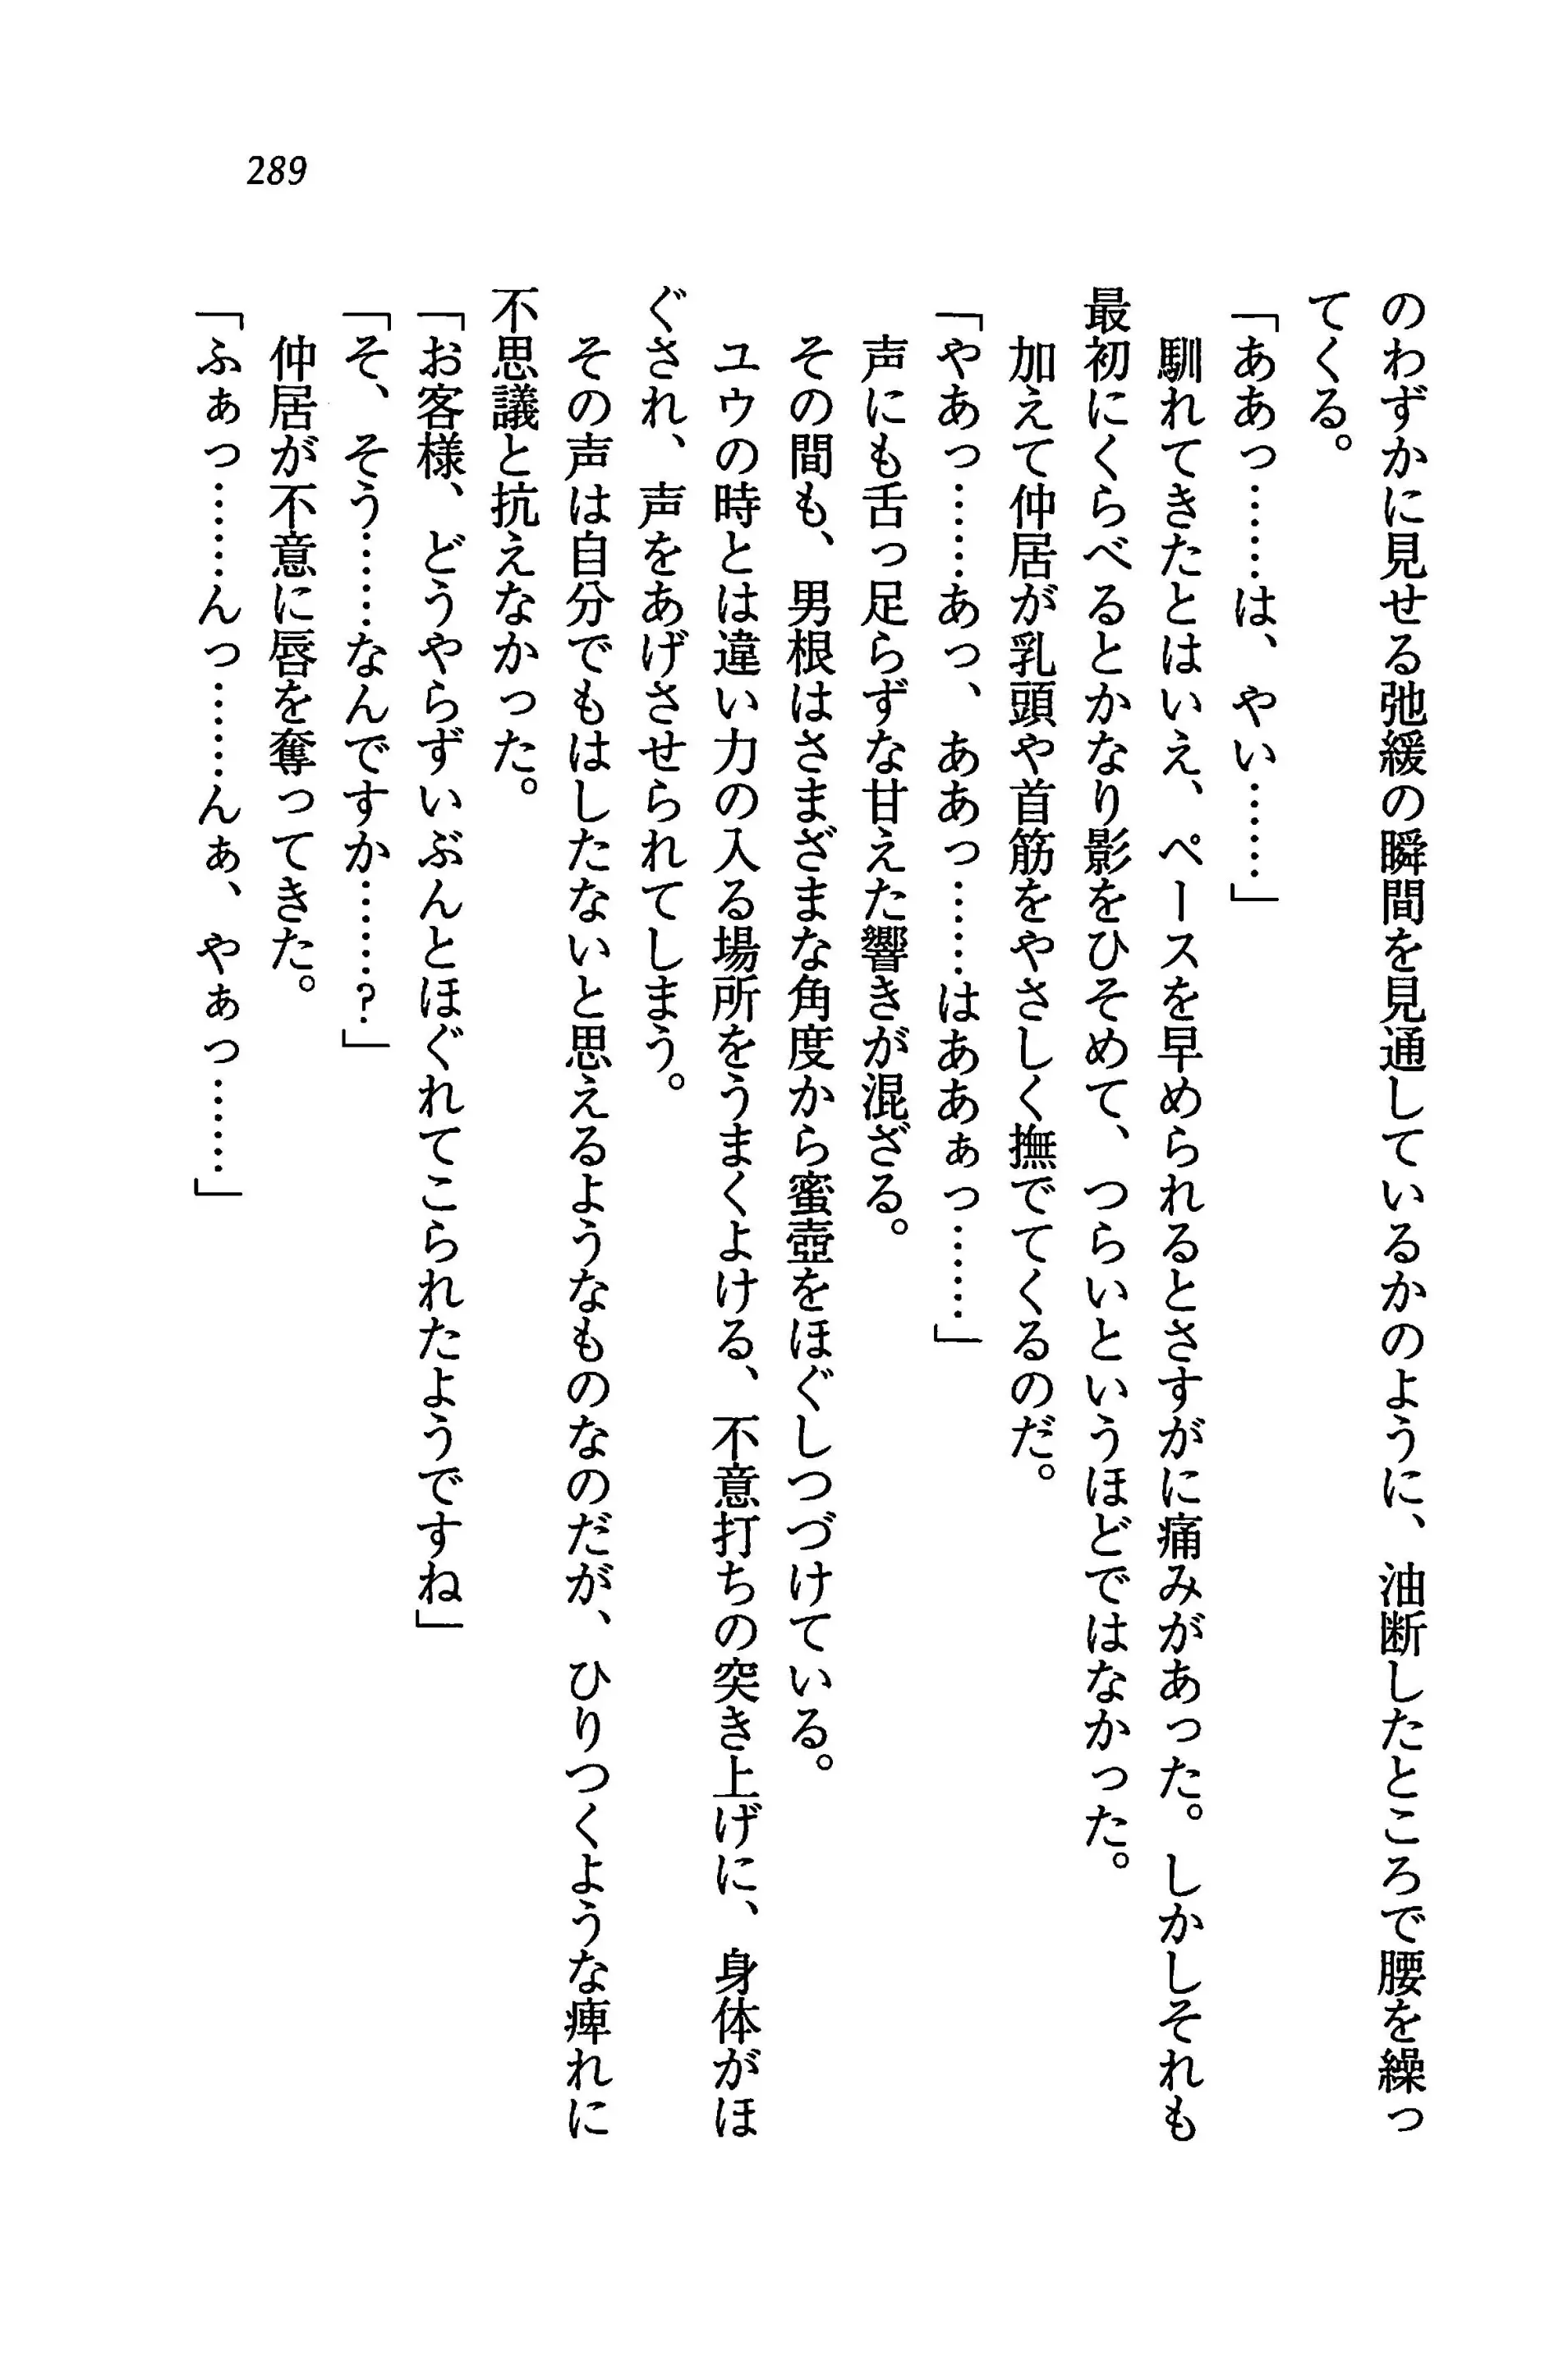 289
のわずかに見せる弛緩の瞬間を見通しているかのように、油断したところで腰を繰っ
てくる。
「ああっ………は、やい………」
馴れてきたとはいえ、ペースを早められるとさすがに痛みがあった。しかしそれも
最初にくらべるとかなり影をひそめて、つらいというほどではなかった。
加えて仲居が乳頭や首筋をやさしく撫でてくるのだ。
「やあっ………あっ、ああっ………はああぁっ………」
声にも舌っ足らずな甘えた響きが混ざる。
その間も、男根はさまざまな角度から蜜壺をほぐしつづけている。
ユウの時とは違い力の入る場所をうまくよける、不意打ちの突き上げに、身体がほ
ぐされ、声をあげさせられてしまう。
その声は自分でもはしたないと思えるようなものなのだが、ひりつくような痺れに
不思議と抗えなかった。
「お客様、どうやらずいぶんとほぐれてこられたようですね」
「そ、そう………なんですか………?」
仲居が不意に唇を奪ってきた。
「ふぁっ………んっ………んぁ、やぁっ………」